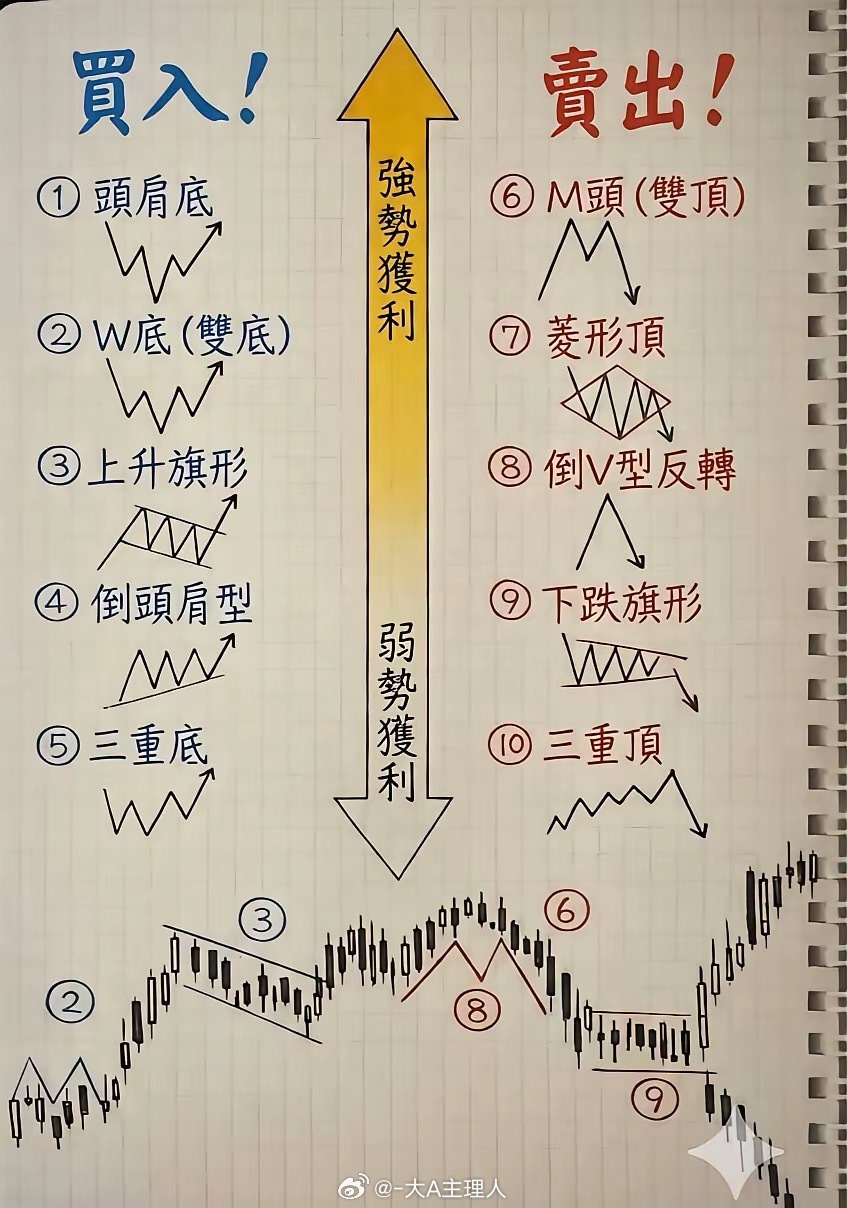 買入!
① 頭肩底
② W底(雙底)
③ 上升旗形
④ 倒頭肩型
⑤ 三重底
強勢獲利
弱勢獲利
賣出!
⑥ M頭(雙頂)
⑦ 菱形頂
⑧ 倒V型反轉
⑨ 下跌旗形
⑩ 三重頂
②
③
⑧
⑥
⑨
@-大A主理人